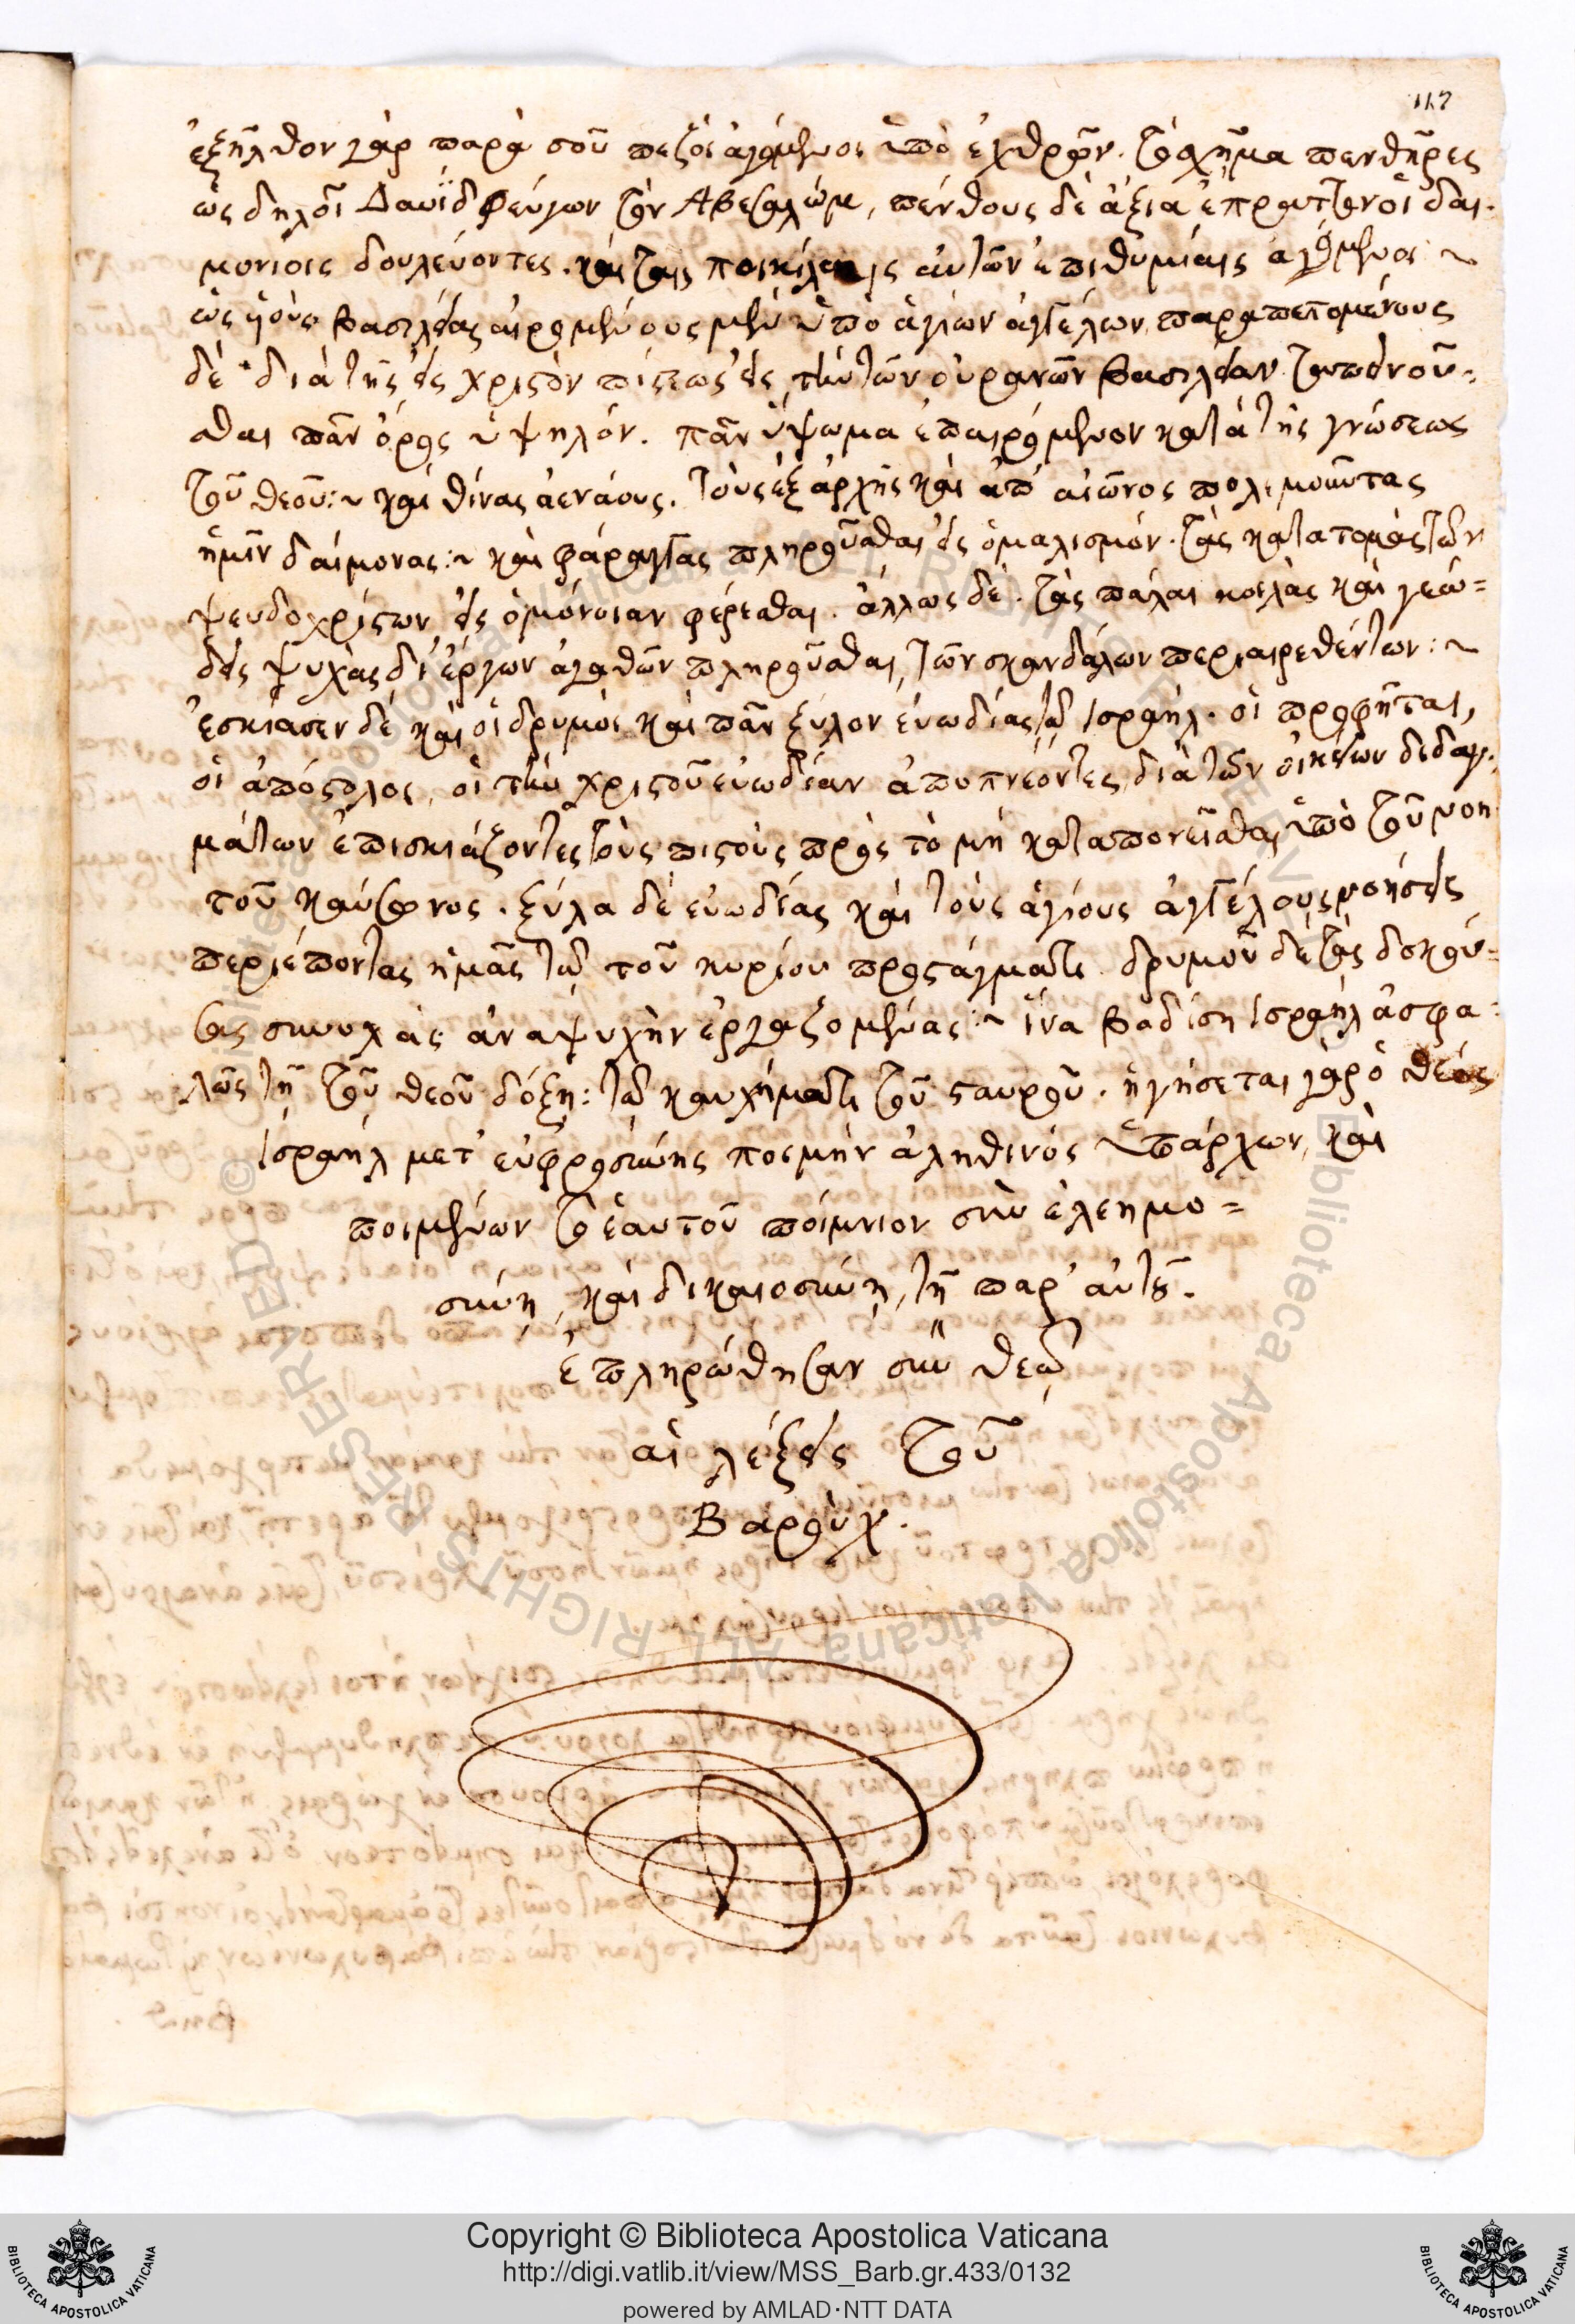 117
ἐξῆλθον γὰρ παρὰ σοῦ πεζοὶ ἀγόμενοι ὑπὸ ἐχθρῶν. τὸ σχῆμα πενθῆρες
ὡς δηλοῖ Δαυῒδ φεύγων τὸν Ἀβεσαλώμ, πένθους δὲ ἄξια ἔπραττον οἱ δαι-
μονίοις δουλεύοντες. καὶ ταῖς ποικίλαις αὐτῶν ἐπιθυμίαις ἀγόμενοι :~
ὡς υἱοὺς βασιλείας αἰρομένους μὲν ὑπὸ ἁγίων ἀγγέλων, παραπεπομένους
δὲ διὰ τῆς εἰς χριστὸν πίστεως εἰς τὴν τῶν οὐρανῶν βασιλείαν. ταπεινοῦ-
σθαι πᾶν ὄρος ὑψηλόν. πᾶν ὕψωμα ἐπαιρόμενον κατὰ τῆς γνώσεως
τοῦ θεοῦ :~ καὶ θίνας ἀενάους. τοὺς ἐξ ἀρχῆς καὶ ἀπ' αἰῶνος πολεμοῦντας
ἡμῖν δαίμονας :~ καὶ φάραγγας πληροῦσθαι εἰς ὁμαλισμόν. τὰς κατατομὰς τῶν
ψευδοχρίστων εἰς ὁμόνοιαν φέρεσθαι. ἄλλως δὲ. τὰς πάλαι κοιλὰς καὶ γεώ-
δεις ψυχὰς δι' ἔργων ἀγαθῶν πληροῦσθαι, τῶν σκανδάλων περιαιρεθέντων :~
ἐσκίασεν δὲ καὶ οἱ δρυμοὶ καὶ πᾶν ξύλον εὐωδίας τῷ Ἰσραήλ. οἱ προφῆται,
οἱ ἀπόστολοι, οἱ τὴν χριστοῦ εὐωδίαν ἀποπνέοντες, διὰ τῶν οἰκείων διδαγ-
μάτων ἐπισκιάζοντες τοὺς πιστοὺς πρὸς τὸ μὴ καταπονεῖσθαι ὑπὸ τοῦ νοη
τοῦ καύσωνος. ξύλα δὲ εὐωδίας καὶ τοὺς ἁγίους ἀγγέλους νοήσεις
περιέποντας ἡμᾶς τῷ τοῦ κυρίου προστάγματι. δρυμοῦ δὲ τὰς δοκού-
σας συνοχὰς ἀναψυχὴν ἐργαζομένας :~ ἵνα βαδίσῃ Ἰσραὴλ ἀσφα-
λῶς τῇ τοῦ θεοῦ δόξῃ : τῷ καυχήματι τοῦ σταυροῦ. ἡγήσεται γὰρ ὁ θεὸς
Ἰσραὴλ μετ' εὐφροσύνης ποιμὴν ἀληθινὸς ὑπάρχων, καὶ
ποιμένων τὸ ἑαυτοῦ ποίμνιον σὺν ἐλεημο-
σύνῃ, καὶ δικαιοσύνῃ, τῇ παρ' αὐτοῦ.
ἐπληρώθησαν σὺν θεῷ
αἱ λέξεις τοῦ
Βαρούχ.
Copyright © Biblioteca Apostolica Vaticana
http://digi.vatlib.it/view/MSS_Barb.gr.433/0132
powered by AMLAD·NTT DATA
BIBLIOTECA APOSTOLICA VATICANA
BIBLIOTECA APOSTOLICA VATICANA